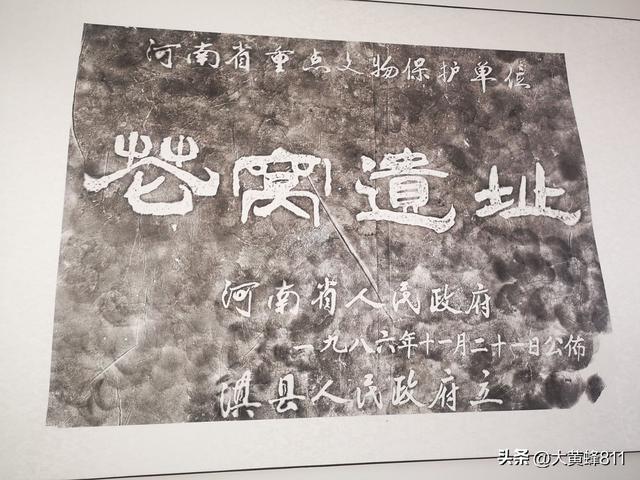 河南省重点文物保护单位
花窝遺址
河南省人民政府
一九八六年十一月二十一日公佈
淇县人民政府立
头条 @大黄蜂811